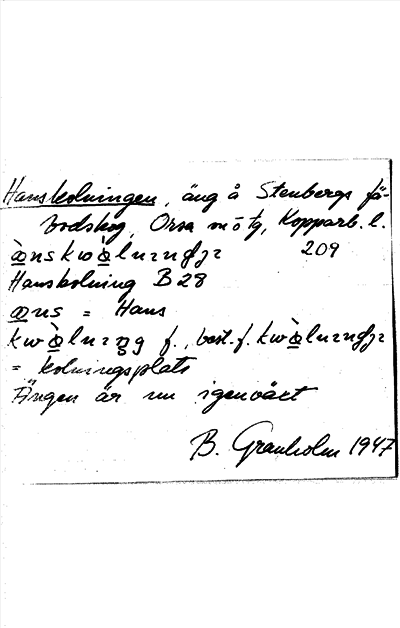 Hanskolningen, äng å Stenbergs fä-
bodskog, Orsa m ö tg, Kopparb. l.
209
Hanskolning B28
= Hans
f., best. f.
= kolningsplats
Ängen är nu igenväxt
B. Granholm 1947